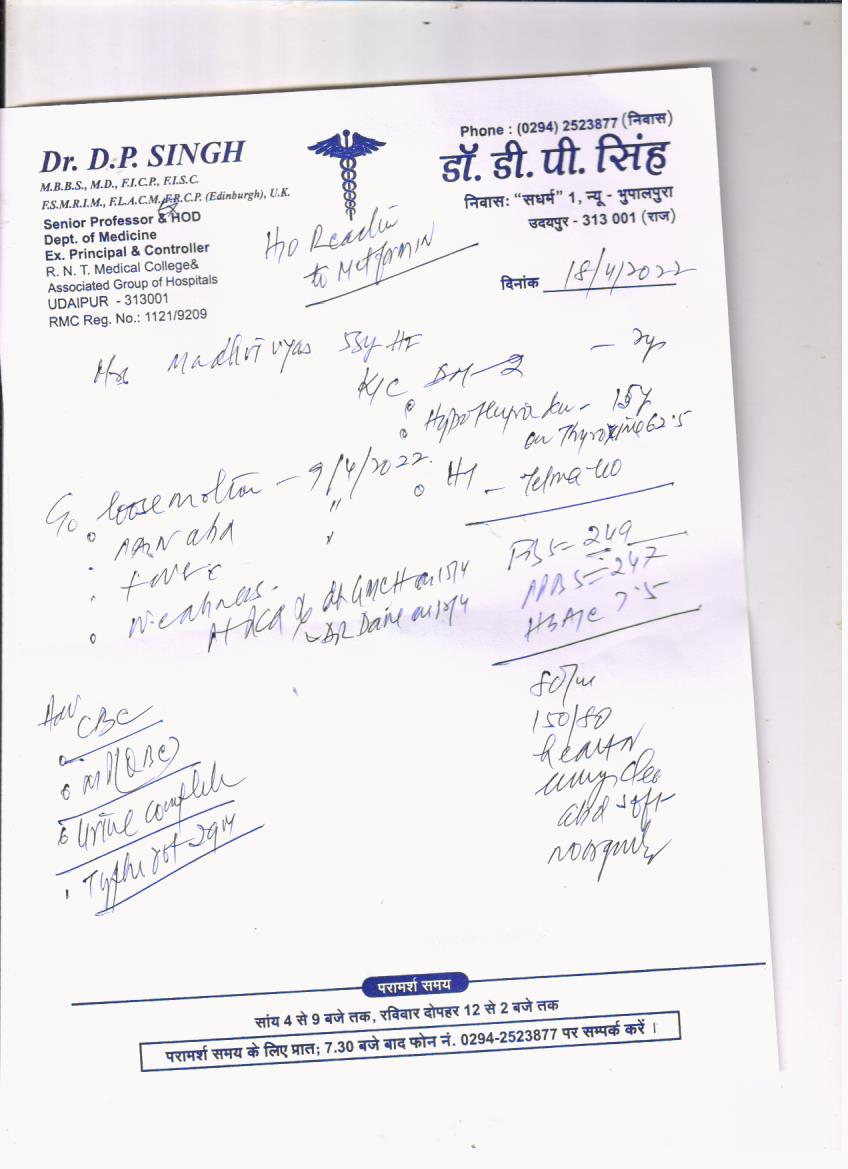 Dr. D.P. SINGH
M.B.B.S., M.D., F.I.C.P., F.I.S.C.
F.S.M.R.I.M., F.L.A.C.M., F.R.C.P. (Edinburgh), U.K.
Senior Professor & HOD
Dept. of Medicine
Ex. Principal & Controller
R. N. T. Medical College&
Associated Group of Hospitals
UDAIPUR - 313001
RMC Reg. No.: 1121/9209
Phone : (0294) 2523877 (निवास)
डॉ. डी. पी. सिंह
निवास: “सधर्म” 1, न्यू - भुपालपुरा
उदयपुर - 313 001 (राज)
H/O Reaction
to Metformin
दिनांक 18/4/2022
Mrs Madhvi vyas 55y
K/C DM-2
Hypothyroidism - 15y
on Thyroxine 62.5
HT - Telma 40
C/o loose motion - 9/4/2022
Pain abd "
Fever "
Weakness.
FBS = 249
PPBS = 247
HbA1c 7.5
80/m
150/80
heart N
lungs clear
abd soft
Adv
CBC
MP (QBC)
Urine complete
Typhi dot IgM
परामर्श समय
सांय 4 से 9 बजे तक, रविवार दोपहर 12 से 2 बजे तक
परामर्श समय के लिए प्रात; 7.30 बजे बाद फोन नं. 0294-2523877 पर सम्पर्क करें ।